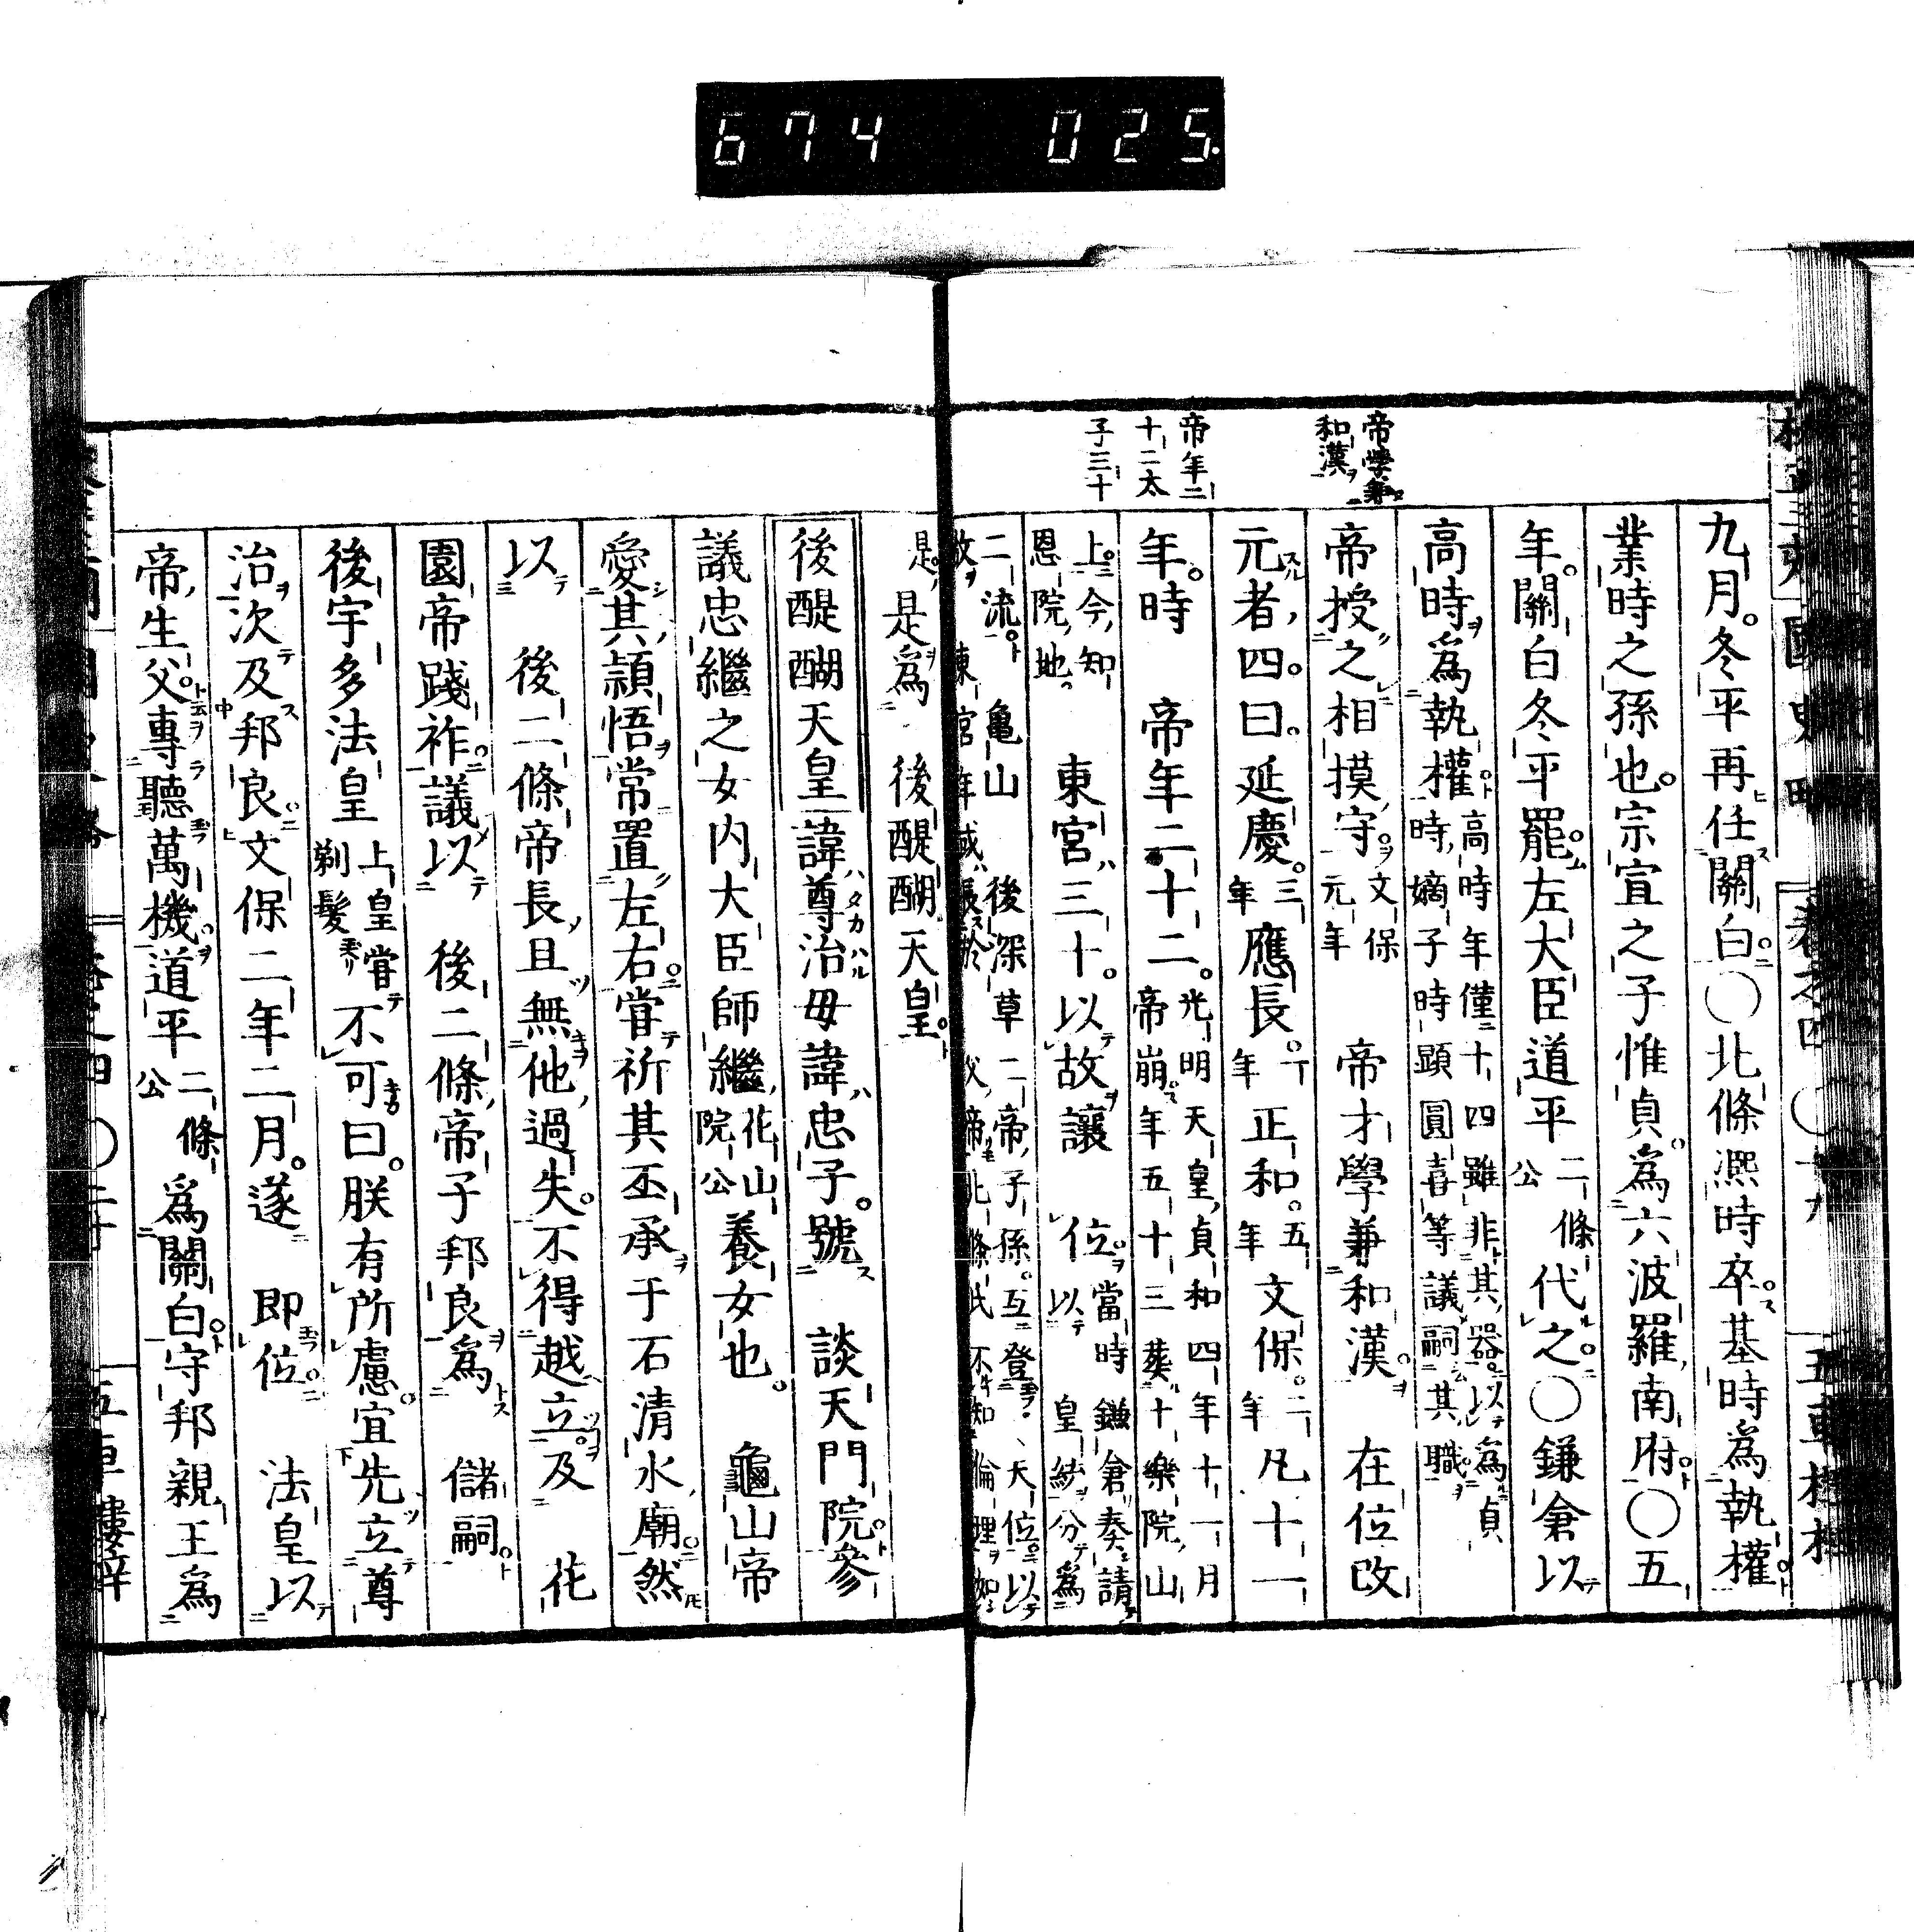 674 025
帝學兼
和漢
帝年二
十二太
子三十
九月。冬平再任關白。○北條凞時卒。基時為執權
業時之孫也。宗宣之子惟貞。為六波羅南府。○五
年。關白冬平罷。左大臣道平二條公代之。○鎌倉以
高時為執權。高時年僅十四雖非其器。以為貞時嫡子時顕圓喜等議嗣其職。
帝授之相摸守。文保元年 帝才學兼和漢。在位改
元者四。曰。延慶。三年應長。一年正和。五年文保。二年凡十一
年。時 帝年二十二。光明天皇貞和四年十一月帝崩。年五十三葬十樂院山
上。今知恩院地。 東宮三十。以故讓 位。當時鎌倉奏請以 皇統分為
二流。龜山 後深草二帝子孫。互登天位。以
是。是為 後醍醐天皇。
後醍醐天皇諱尊治母諱忠子。號 談天門院。參
議忠繼之女内大臣師繼花山院公養女也。 龜山帝
愛其頴悟常置左右。嘗祈其丕承于石清水廟。然
以 後二條帝長且無他過失。不得越立。及 花
園帝踐祚。議以 後二條帝子邦良為 儲嗣。
後宇多法皇上皇嘗剃髮不可曰。朕有所慮。宜先立尊
治次及邦良。文保二年二月。遂 即位。 法皇以
帝生父。專聽萬機。道平二條公為關白。守邦親王為